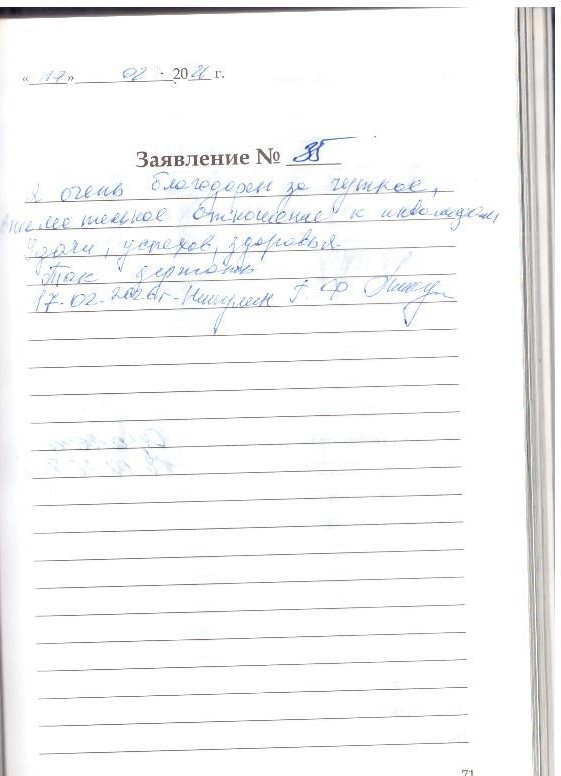 «17» 02 . 2026 г.
Заявление № 35
Я очень благодарен за чуткое,
внимательное отношение к инвалидам,
Удачи, успехов, здоровья.
Так держать
17-02-2026г-Никулин Г. Ф
71